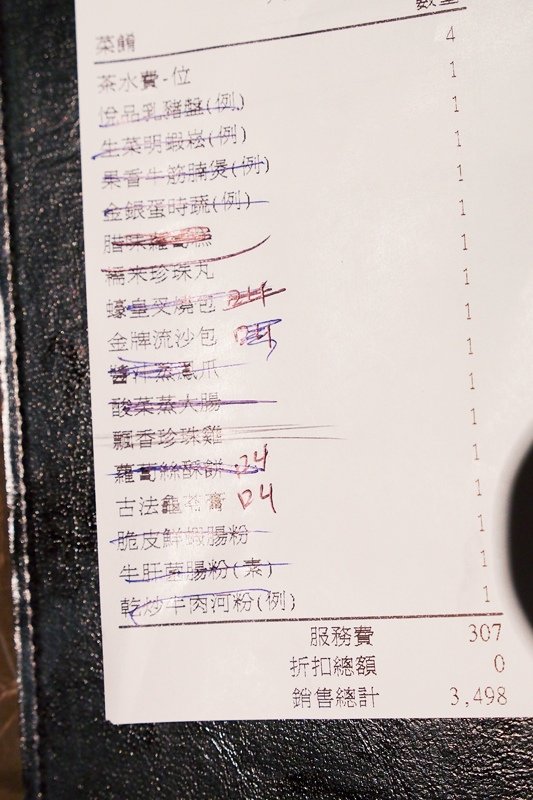 數量
菜餚
茶水費-位 4
乳豬盤(例) 1
生菜明蝦崧(例) 1
果香牛筋腩煲(例) 1
金銀蛋時蔬(例) 1
腊味蘿蔔糕 1
糯米珍珠丸 1
蠔皇叉燒包 1
金牌流沙包 1
醬汁蒸鳳爪 1
酸菜蒸大腸 1
飄香珍珠雞 1
蘿蔔絲酥餅 04 1
古法龜苓膏 04 1
脆皮鮮蝦腸粉 1
牛肝菌腸粉(素) 1
乾炒牛肉河粉(例) 1
服務費 307
折扣總額 0
銷售總計 3,498